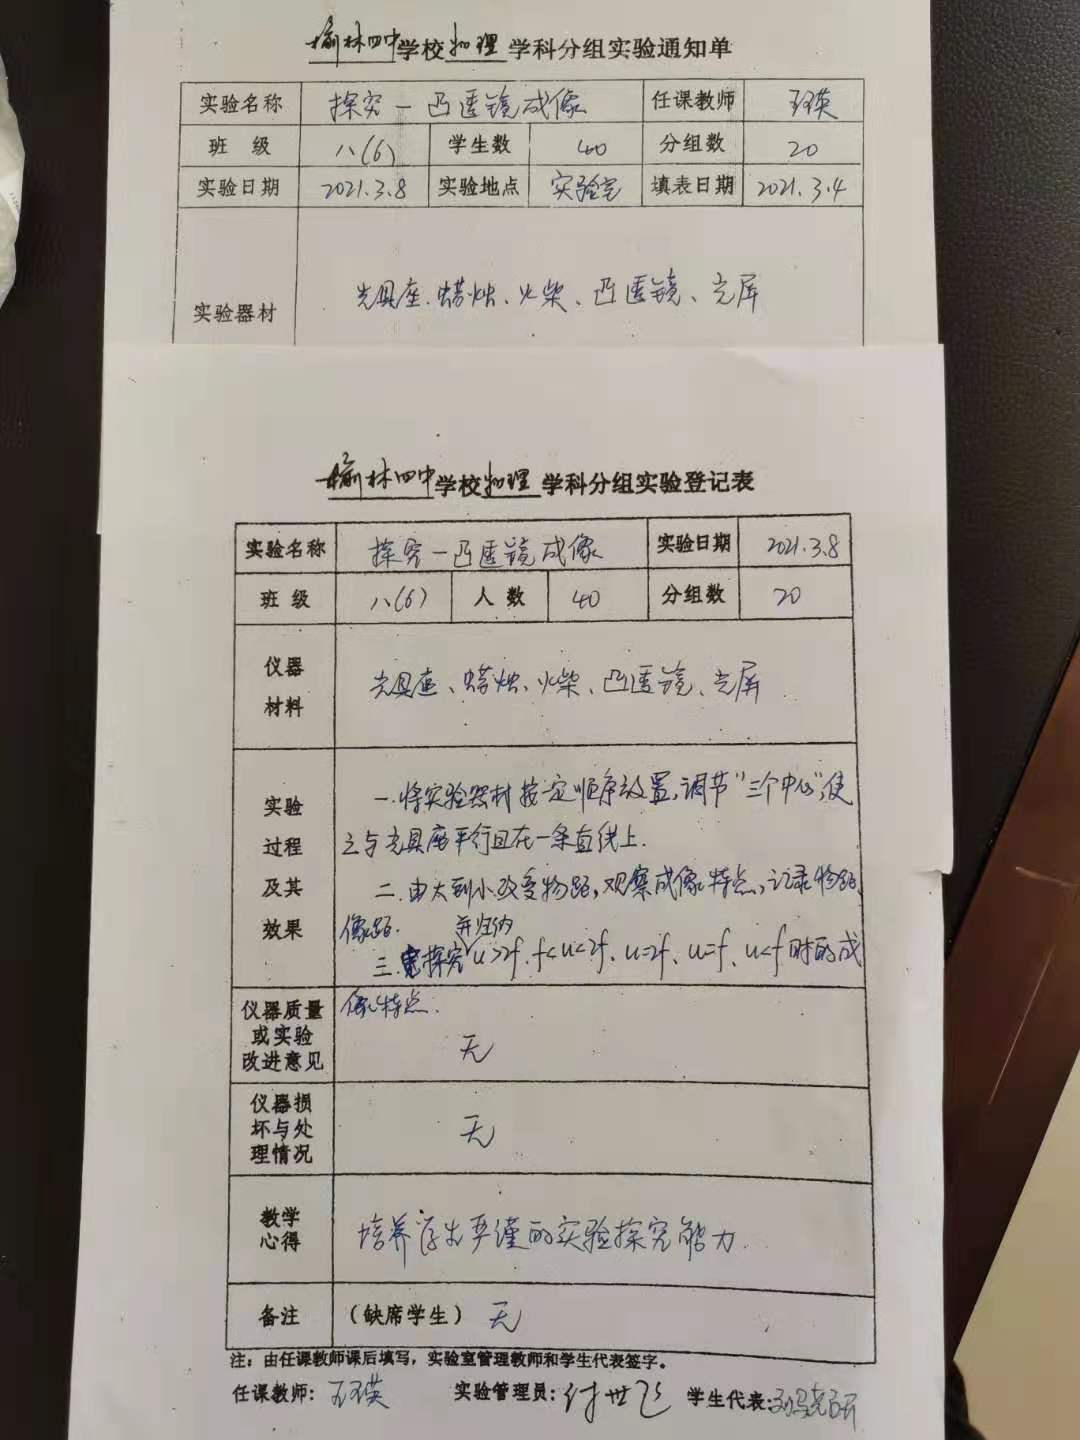 榆林四中学校物理学科分组实验通知单
实验名称 探究一凸透镜成像 任课教师
班 级 八(6) 学生数 40 分组数 20
实验日期 2021.3.8 实验地点 实验室 填表日期 2021.3.4
实验器材 光具座、蜡烛、火柴、凸透镜、光屏
榆林四中学校物理学科分组实验登记表
实验名称 探究一凸透镜成像 实验日期 2021.3.8
班 级 八(6) 人 数 40 分组数 20
仪器
材料
光具座、蜡烛、火柴、凸透镜、光屏
实验
过程
及其
效果
一.将实验器材按一定顺序放置,调节"三个中心",使
之与光具座平行且在一条直线上.
二.由大到小改变物距,观察成像特点,记录物距、
像距.
三.探究并归纳u>2f、f<u<2f、u=2f、u=f、u<f时的成
像特点.
仪器质量
或实验
改进意见
无
仪器损
坏与处
理情况
无
教学
心得
培养学生严谨的实验探究能力.
备注 (缺席学生) 无
注:由任课教师课后填写,实验室管理教师和学生代表签字。
任课教师: 实验管理员:付世飞 学生代表: